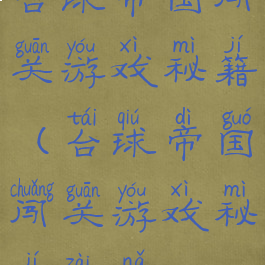 台球帝国闯
guān yóu xì mì jí
关游戏秘籍
tái qiú dì guó
(台球帝国
chuǎng guān yóu xì mì
闯关游戏秘
jí zài nǎ